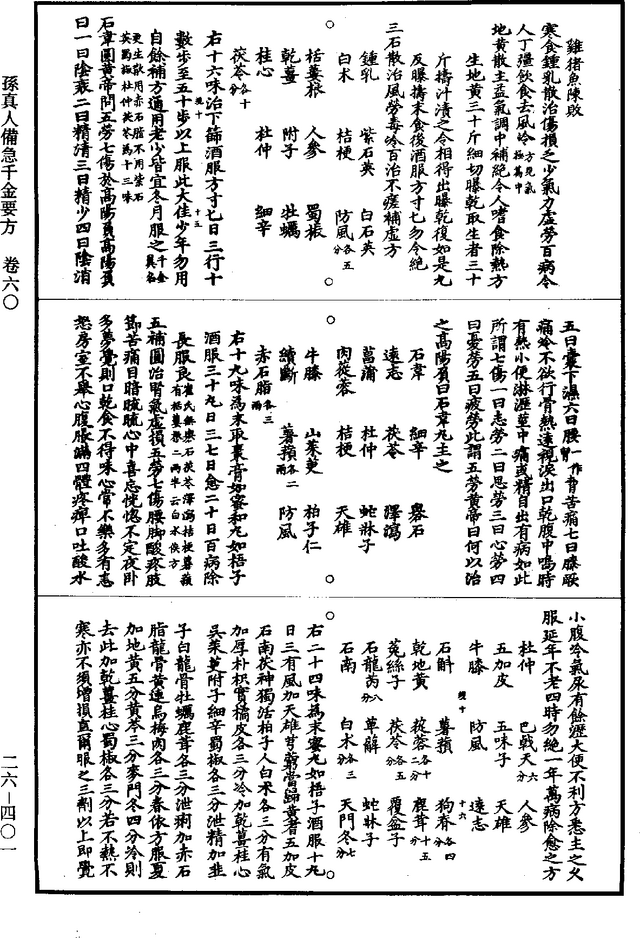 雞猪魚陳敗
寒食鍾乳散治傷損乏少氣力虛勞百病令
人丁彊飲食去風冷方見氣極篇中
地黃散主益氣調中補絕令人嗜食除熱方
生地黃三十斤細切曝乾取生者三十
斤擣汁漬之令相得出曝乾復如是九
反曝擣末食後酒服方寸匕勿令絕
三石散治風勞毒冷百治不瘥補虛方
鍾乳 紫石英 白石英
白朮 桔梗 防風各五分
栝蔞根 人參 蜀椒
乾薑 附子 牡蠣
桂心 杜仲 細辛
茯苓各十分
右十六味治下篩酒服方寸匕日三行十
數步至五十步以上服此大佳少年勿用
自餘補方通用老少皆宜冬月服之千金翼名
更生散用赤石脂不用紫石英蜀椒杜仲茯苓為十三味
石韋圓黃帝問五勞七傷於高陽負高陽負
曰一曰陰衰二曰精清三曰精少四曰陰消
五曰囊下濕六曰腰一作胷脅苦痛七曰膝厥
痛冷不欲行骨熱遠視淚出口乾腹中鳴時
有熱小便淋瀝莖中痛或精自出有病如此
所謂七傷一曰志勞二曰思勞三曰心勞四
曰憂勞五曰疲勞此謂五勞黃帝曰何以治
之高陽負曰石韋丸主之
石韋 細辛 礬石
遠志 茯苓 澤瀉
菖蒲 杜仲 蛇牀子
肉蓯蓉 桔梗 天雄
牛膝 山茱萸 柏子仁
續斷 薯蕷各二兩 防風
赤石脂各三兩
右十九味為末取棗膏如蜜和丸如梧子
酒服三十丸日三七日愈二十日百病除
長服良崔氏無礬石茯苓澤瀉桔梗薯蕷有栝蔞根二兩半云白水侯方
五補圓治腎氣虛損五勞七傷腰脚酸疼肢
節苦痛目暗䀮䀮心中喜忘恍惚不定夜臥
多夢覺則口乾食不得味心常不樂多有恚
怒房室不舉心腹脹滿四體疼痹口吐酸水
小腹冷氣尿有餘瀝大便不利方悉主之久
服延年不老四時勿絕一年萬病除愈之方
杜仲 巴戟天六分 人參
五加皮 五味子 天雄
牛膝 防風 遠志
石斛 薯蕷 狗脊各四分
乾地黃 蓯蓉各十二分 鹿茸十五分
菟絲子 茯苓各五分 覆盆子
石龍芮各八分 萆薢 蛇牀子
石南 白朮各三分 天門冬七分
右二十四味為末蜜丸如梧子酒服十丸
日三有風加天雄芎藭當歸黃耆五加皮
石南茯神獨活柏子人白朮各三分有氣
加厚朴枳實橘皮各三分冷加乾薑桂心
吳茱萸附子細辛蜀椒各三分泄精加韭
子白龍骨牡蠣鹿茸各三分泄痢加赤石
脂龍骨黃連烏梅肉各三分春依方服夏
加地黃五分黃芩三分麥門冬四分冷則
去此加乾薑桂心蜀椒各三分若不熱不
寒亦不須增損直爾服之三劑以上即覺
孫真人備急千金要方 卷六〇
二六－四〇一